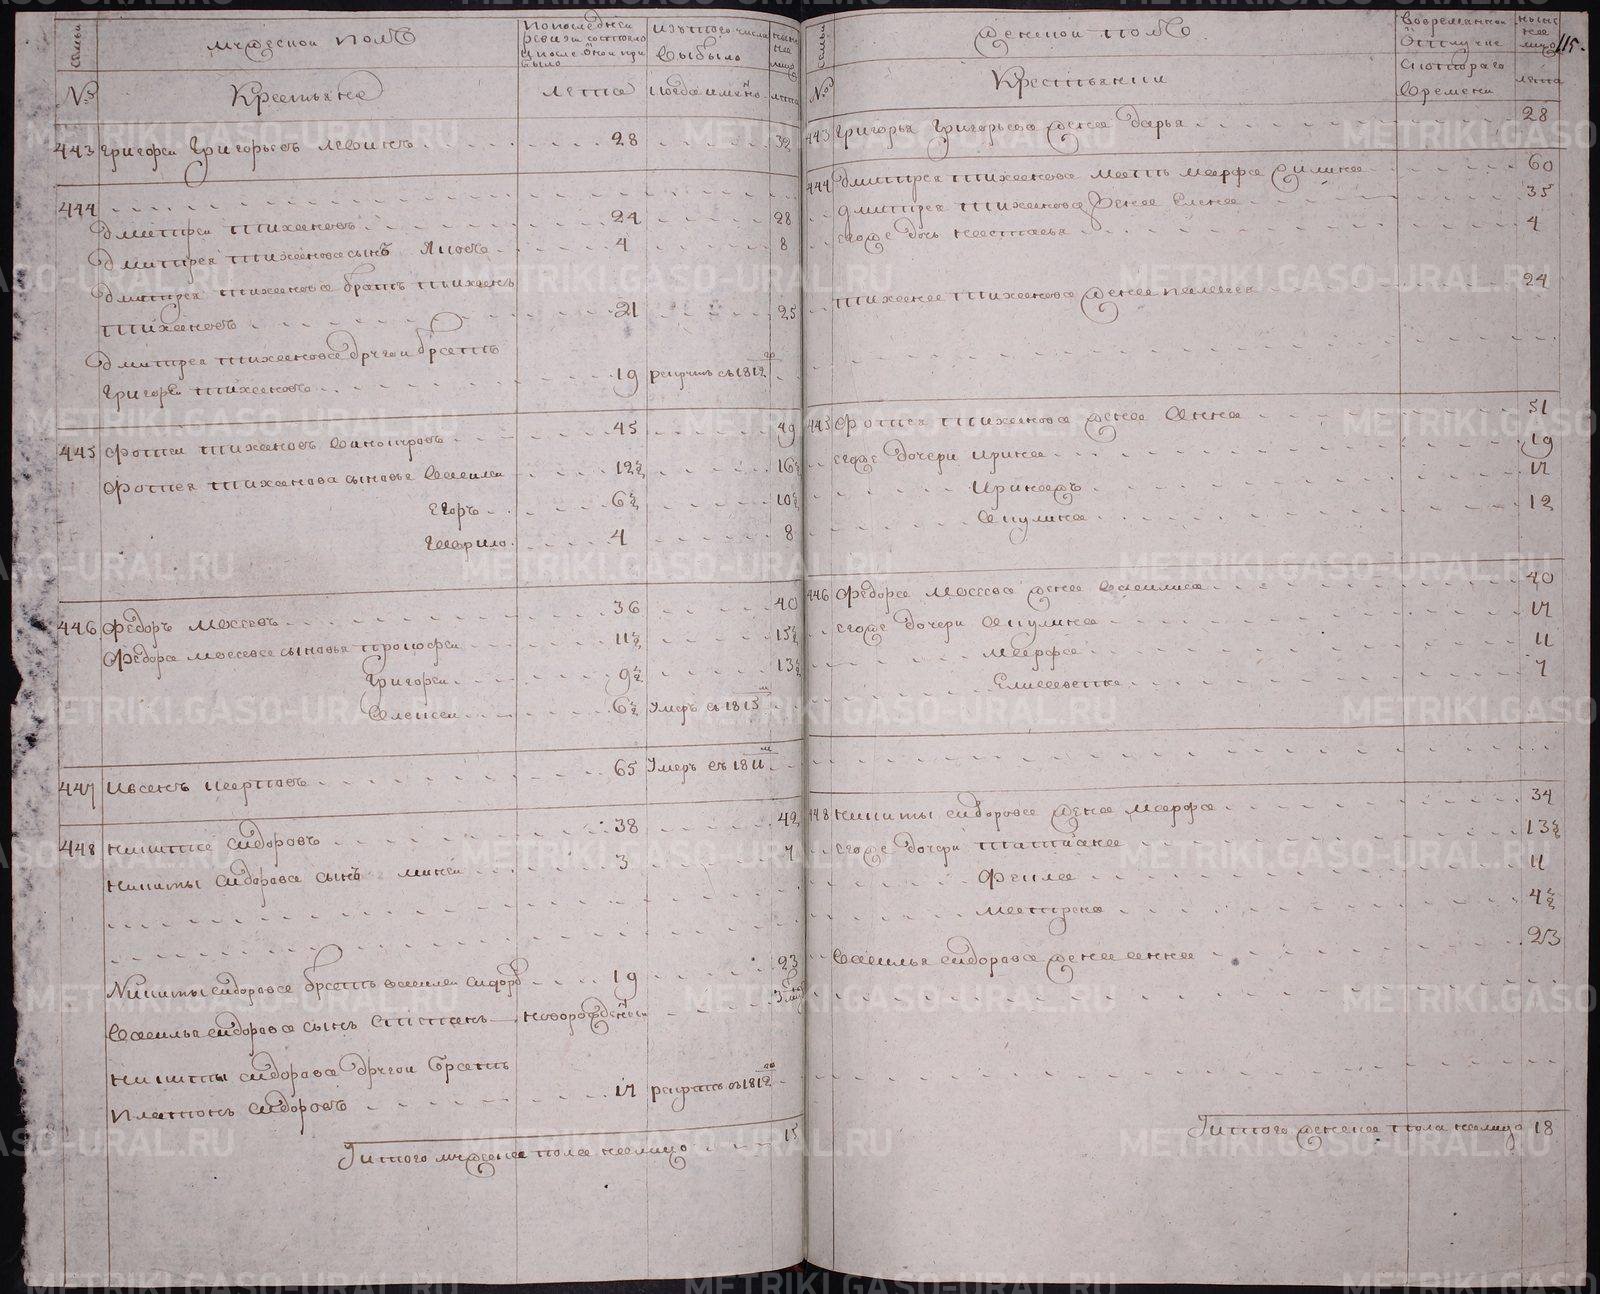 семьи
мужеской полъ
По последней
ревизи состояло
и после оной при
было
изътого числа
выбыло
ныне
лицо
№
Крестьяне
лета
когда имянно
лета
443 Григорей Григорьевъ 28 32
444
Дмитрей Тихановъ 24 28
Дмитрея Тиханова сынъ Яковъ 4 8
Дмитрея Тиханова братъ Тиханъ
Тихановъ 21 25
Дмитрея Тиханова другой братъ
Григорей Тихановъ 19 рекрутъ съ 1812 го
445 Фотей Тихановъ 45 49
Фотея Тиханова сыновья Василей 12½ 16½
Егоръ 6½ 10½
Гаврило 4 8
446 Федоръ Мосеевъ 36 40
Федора Мосеева сыновья Прокофей 11½ 15½
Григорей 9½ 13½
Алексей 6½ Умеръ съ 1815 м
447 Иванъ Карповъ 65 Умеръ съ 1811 м
448 Никита Сидоровъ 38 42
Никиты Сидорова сынъ Михей 3 7
Никиты Сидорова братъ Василей Сидоровъ 19 23
Василья Сидорова сынъ Степанъ новорожденный
Никиты Сидорова другой братъ
Платонъ Сидоровъ 17 рекрутъ съ 1812 го
Итого мужеска пола налицо 15
семьи
женской полъ
Вовременной
отлучке
ныне
лицо
115.
№
Крестьянки
с котораго
времени
лета
443 Григорья Григорьева жена Дарья 28
444 Дмитрея Тиханова мать Марфа 60
Дмитрея Тиханова жена Елена 35
егоже дочь Настасья 4
Тихана Тиханова жена Палагея 24
445 Фотея Тиханова жена Анна 51
егоже дочери Ирина 19
17
Акулина 12
446 Федора Мосеева жена Василиса 40
егоже дочери Акулина 17
Марфа 11
Елисавета 7
448 Никиты Сидорова жена Марфа 34
егоже дочери Татиана 13½
Фекла 11
Матрена 4½
Василья Сидорова жена Анна 23
Итого женска пола налицо 18
METRIKI.GASO-URAL.RU